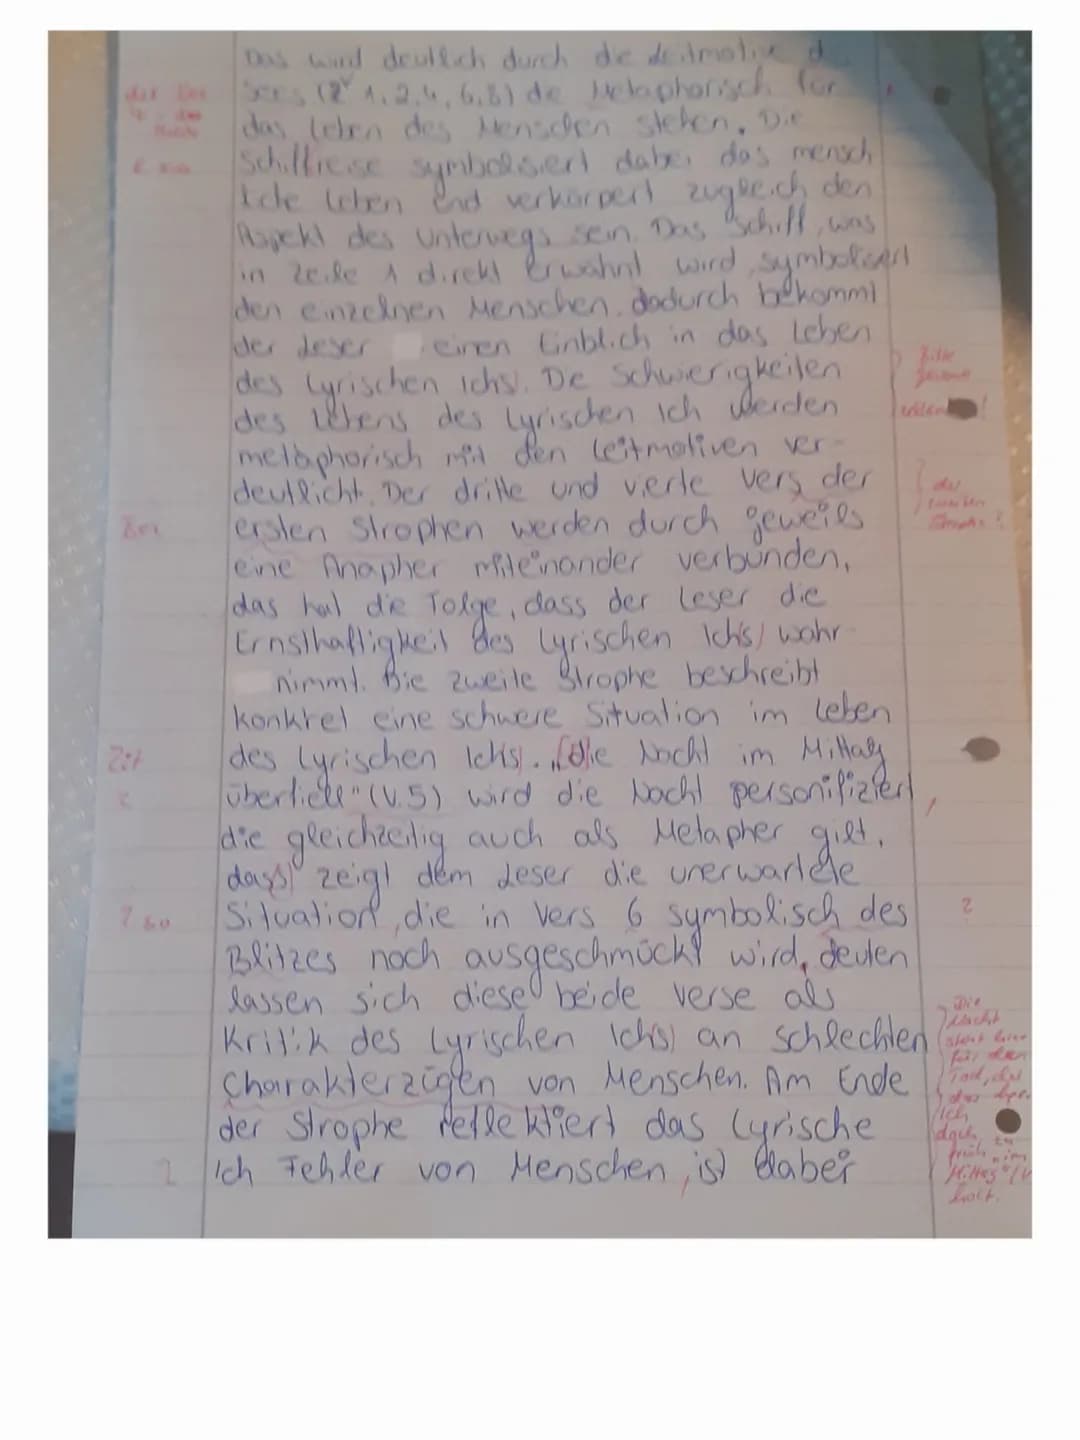 Das wird deutlich durch die Leitmotive d
Sees (Z 1, 2, 4, 6, 8) de Metaphorisch für
das Leben des Menschen stehen. Die
Schiffreise symbolisiert dabei das mensch
liche Leben und verkörpert zugleich den
Aspekt des Unterwegs sein. Das Schiff, was
in Zeile 1 direkt erwähnt wird, symbolisiert
den einzelnen Menschen, dadurch bekommt
der Leser einen Einblich in das Leben
des Lyrischen Ichs. Die Schwierigkeiten
des Lebens des Lyrischen Ich werden
metaphorisch mit den Leitmotiven ver-
deutlicht. Der dritte und vierte Vers der
ersten Strophen werden durch jeweils
eine Anapher miteinander verbunden,
das hat die Folge, dass der Leser die
Ernsthaftigkeit des Lyrischen Ich's wahr-
nimmt. Die zweite Strophe beschreibt
konkret eine schwere Situation im Leben
des Lyrischen Ichs. „[d]ie Nacht im Mittag
überfiel" (V.5) wird die Nacht personifiziert,
die gleichzeitig auch als Metapher gilt,
dass zeigt dem Leser die unerwartete
Situation, die in Vers 6 symbolisch des
Blitzes noch ausgeschmückt wird, deuten
lassen sich diese beide Verse als
Kritik des Lyrischen Ichs an schlechten
Charakterzügen von Menschen. Am Ende
der Strophe reflektiert das Lyrische
Ich Fehler von Menschen, ist dabei
Bitte
genauer
der
zweiten
Strophe?
Bez
Zit
R
? so
?
Die
Nacht
steht hier
für den
Tod, der
das lyr.
Ich
doch
zu
früh „im
Mittag"
holt.